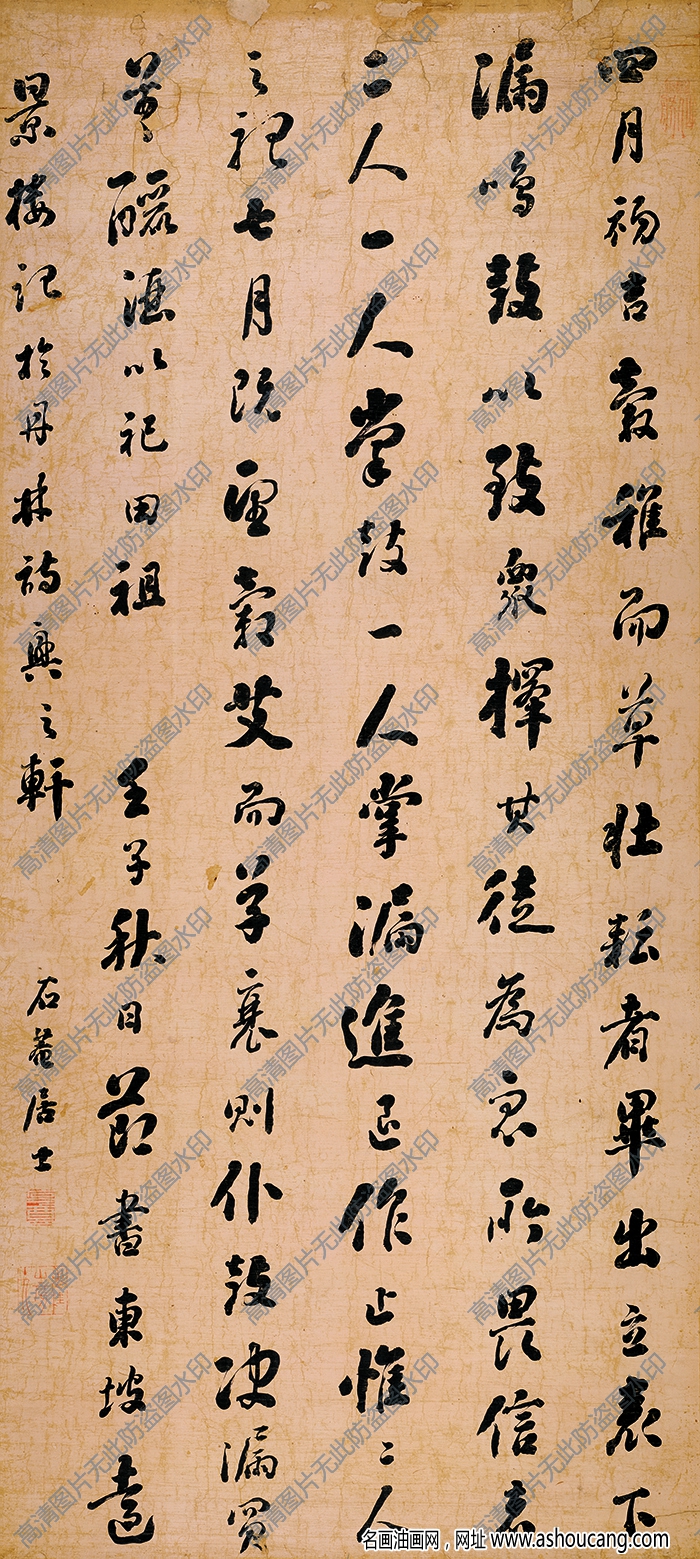 四月初吉穀稚而草壯耘者畢出立表下
漏鳴鼓以致眾擇其徒為眾所畏信者
二人一人掌鼓一人掌漏進退作止惟二人
之聽七月既望穀艾而草衰則仆鼓決漏買
羊釃酒以祀田祖 壬子秋日節書東坡遠
景樓記於丹林詩興之軒
石菴居士
名画油画网，网址 www.ashoucang.com
高清图片无此防盗图水印